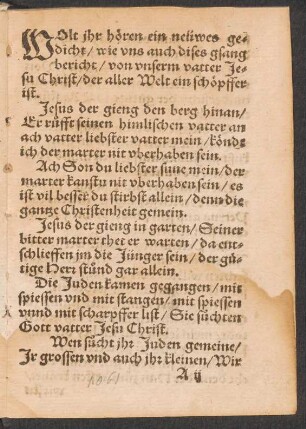 WOlt jhr hören ein neüwes ge-
dicht / wie vns auch dises gsang
bericht / von vnserm vatter Je-
su Christ / der aller Welt ein schöpffer
ist.
Jesus der gieng den berg hinan /
Er rüfft seinen himlischen vatter an
ach vatter liebster vatter mein / köndt
ich der marter nit vberhaben sein.
Ach Son du liebster sune mein / der
marter kanstu nit vberhaben sein / es
ist vil besser du stirbst allein / denn die
gantze Christenheit gemein.
Jesus der gieng in garten / Seiner
bitter marter thet er warten / da ent-
schlieffen jm die Jünger sein / der gü-
tige Herr stůnd gar allein.
Die Juden kamen gegangen / mit
spiessen vnd mit stangen / mit spiessen
vnnd mit scharpffer list / Sie sůchten
Gott vatter Jesu Christ.
Wen sůcht jhr Juden gemeine /
Jr grossen vnd auch jhr kleinen / Wir
A ij